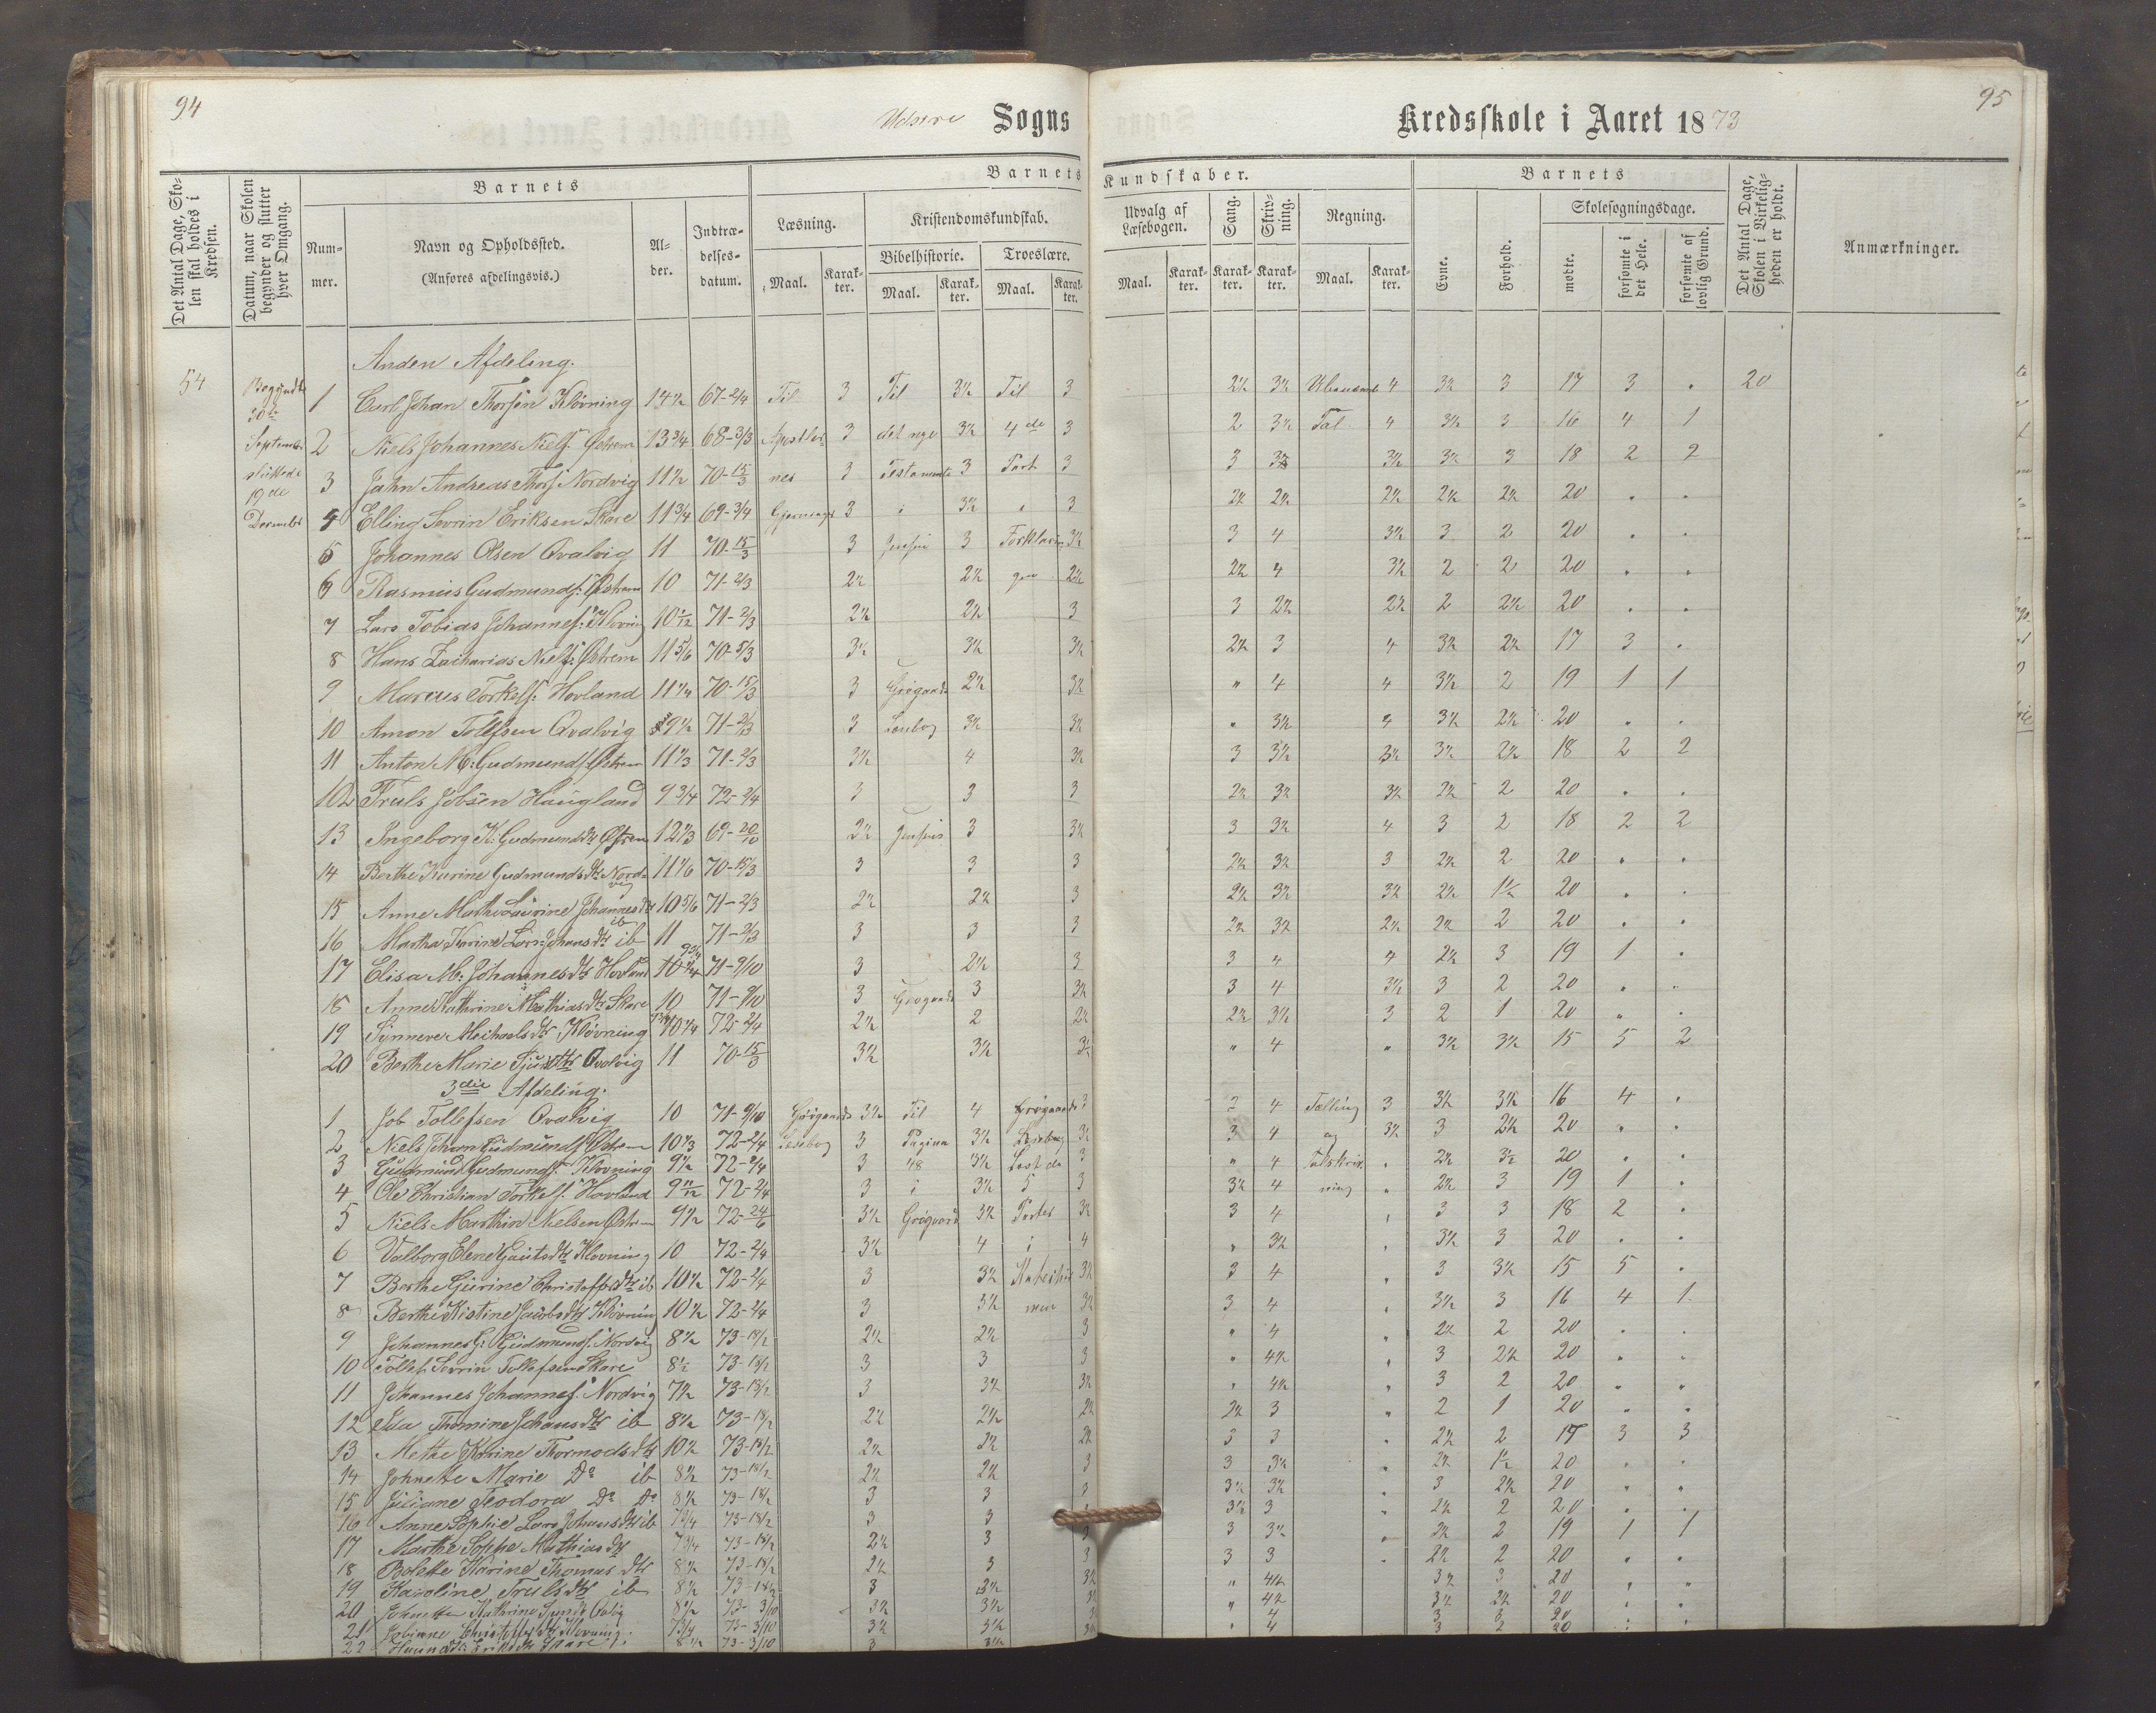 94
Udsire Sogns
Kredsskole i Aaret 1873
95
Det Antal Dage, Skolen skal holdes i Kredsen.
Datum, naar Skolen begynder og slutter hver Omgang.
Barnets
Barnets
Kundskaber.
Barnets
Det Antal Dage, Skolen i Virkeligheden er holdt.
Anmærkninger.
Nummer.
Navn og Opholdssted.
(Anføres afdelingsvis.)
Alder.
Indtrædelsesdatum.
Læsning.
Kristendomskundskab.
Udvalg af Læsebogen.
Sang.
Skrivning.
Regning.
Evne.
Forhold.
Skolesøgningsdage.
Bibelhistorie.
Troeslære.
mødte.
forsømte i det Hele.
forsømte af lovlig Grund.
Maal. Karakter. Maal. Karakter. Maal. Karakter.
Maal. Karakter. Karakter. Karakter. Maal. Karakter.
54
Begyndte
30te
September
sluttede
19de
December
Anden Afdeling.
1 Carl Johan Thorsen Kløvning 14½ 67-2/4 Til 3 Til 3½ Til 3 2½ 3½ 4 3½ 3 17 3 . 20
2 Niels Johannes Nielss: Østrem 13¾ 68-3/3 Apostler 3 det nye 3½ 4de 3 2 3½ Tal 4 3½ 3 16 4 1
3 Jahn Andreas Thors Nordvig 11½ 70-15/3 nes 3 Testamente 3 Part 3 3 3½ 3½ 3½ 3 18 2 2
4 Elling Sevrin Eriksen Skare 11¾ 69-3/4 Gjerninger 3 i 3½ . 3 2½ 2½ 2½ 2½ 2½ 20 . .
5 Johannes Olsen Qvalvig 11 70-15/3 3 Jensen 3 Forklarin 3½ 3 4 3½ 3 2 20 . .
6 Rasmus Gudmunds: Østrem 10 71-2/3 2½ 2½ gen 2½ 2½ 4 3½ 2 2 20 . .
7 Lars Tobias Johannes: Kløvning 10 1/12 71-2/3 2½ 2½ 3 3 2½ 2½ 2 2½ 20 . .
8 Hans Zacharias Niels: Østrem 11 5/6 70-5/3 3½ 3½ 3½ 2½ 3 4 3½ 2½ 17 3 .
9 Marcus Torkels: Hovland 11¼ 70-15/3 3 Grøgaards 2½ 3½ " 4 4 3½ 2 19 1 1
10 Amon Tollefsen Qvalvig 9½ 71-2/3 3 Læsebog 3½ 3½ " 3½ 4 3½ 2½ 20 . .
11 Anton M: Gudmunds Østrem 11⅓ 71-2/3 3½ 4 3½ 3 3½ 3½ 3½ 2½ 18 2 2
12 Truls Jobsen Haugland 9¾ 72-2/4 3 3 3 2½ 3½ 3½ 2½ 2 20 . .
13 Ingeborg K: Gudmundsdtr Østrem 12⅓ 69-20/10 2½ Jensens 3 3½ 3 3½ 4 3 2 18 2 2
14 Berthe Karine Gudmundsdtr Nordvig 11⅙ 70-15/3 3 3 3 2½ 3½ 3 2½ 2 20 . .
15 Anne Marthe Laurine Johannesdtr ib 10 5/6 71-2/3 2½ 2½ 3 2½ 3½ 3½ 2½ 1½ 20 . .
16 Martha Karine Lars Johansdtr ib 11 71-2/3 3 3 3 2½ 3½ 2½ 2½ 2 20 . .
17 Elisa M: Johannesdtr Hovland 10¼ 71-9/10 3 2½ 3 3 4 4 2½ 3 19 1 .
18 Anne Kathrine Mathiasdtr Skare 10 71-9/10 3 Grøgaards 3 3½ 3 4 3½ 3 2 20 . .
19 Synneve Meihaelsdtr Kløvning 10¼ 72-2/4 2½ 2 2½ 2½ 3½ 3 2 1 20 " .
20 Berthe Marie Sjursdtr Qvalvig 11 70-15/3 3½ 3½ 3½ " 4 " 3½ 3½ 15 5 2
3die Afdeling.
1 Job Tollefsen Qvalvig 10 71-9/10 Grøgaards 3½ Til 4 Grøgaards 3 2 4 Tælling 3 3½ 3½ 16 4 .
2 Niels Johan Gudmunds Østrem 10⅓ 72-2/4 Læsebog 3 Pagina 3½ Læsebog 3½ 3 4 og 3½ 3 2½ 20 . .
3 Gudmund Gudmunds: Kløvning 9½ 72-2/4 3 48 3½ 3 " 4 Talskriv " 2½ 3½ 20 . .
4 Ole Christian Torkels: Hovland 9 11/12 72-2/4 3 i 3½ 5 3 3½ 4 ning " 2½ 3 19 1 .
5 Niels Marthin Nielsen Østrem 9½ 72-24/6 3½ Grøgaard 3½ Parter 3½ 3 4 " 3 3 18 2 .
6 Valborg Elene Gautsdtr Kløvning 10 72-2/4 3½ 4 i 4 " 3½ " 3½ 3 20 . .
7 Berthe Gurine Christoffersdtr ib 10½ 72-2/4 3 3½ 3½ 3 4 " 3 3½ 15 5 .
8 Berthe Kistine Jacobsdtr Kløvning 10½ 72-2/4 3 3½ 3½ 3 4 " 3½ 3 16 4 1
9 Johannes G: Gudmunds: Nordvig 8½ 73-18/2 2½ 2½ 3 " 4 " 2½ 2 20 . .
10 Tollef Sevrin Tollefsen Skare 8½ 73-18/2 3 3 3 " 4½ " 3 2½ 20 . .
11 Johannes Johannes: Nordvig 7½ 73-18/2 3 3½ 3½ " 4½ " 3 2 20 " "
12 Ida Thomine Johansdtr ib 8½ 73-18/2 2½ 2½ 2½ 2½ 3 " 2 1 20 " "
13 Mette Karine Thormodsdtr 10½ 73-18/2 2½ 2½ 2½ 3 3 " 2½ 2 17 3 3
14 Johnette Marie Do ib 8½ 73-18/2 2½ 2½ 3 3 3½ " 2½ 1½ 20 . .
15 Juliane Teodora Do Do 8½ 73-18/2 3 3 3½ 3½ " 3 2½ 20 " "
16 Anne Sophie Lars Johansdtr ib 7¾ 73-18/2 3 3 3½ 3 " 2½ 2 20 . .
17 Marthe Sophe Mathiasdtr 7¾ 73-18/2 2½ 3 3 3½ " 2½ 2 19 1 1
18 Bolette Karine Thomasdtr 8½ 73-18/2 2½ 3 3 3 3 " 2½ 2 20 . .
19 Karoline Trulsdtr ib 8½ 73-18/2 3 3½ 3½ " 4½ 3½ 3 20 " "
20 Johnette Kathrine 8½ 73-3/10 3½ 3½ " 4½ 3½ 2½ 20 " "
21 7¾ 73-3/10 3½ 3½ 3 " 4 3 3 20
22 Skare 8½ 73-3/10 3 3½ " 4 3 2 20